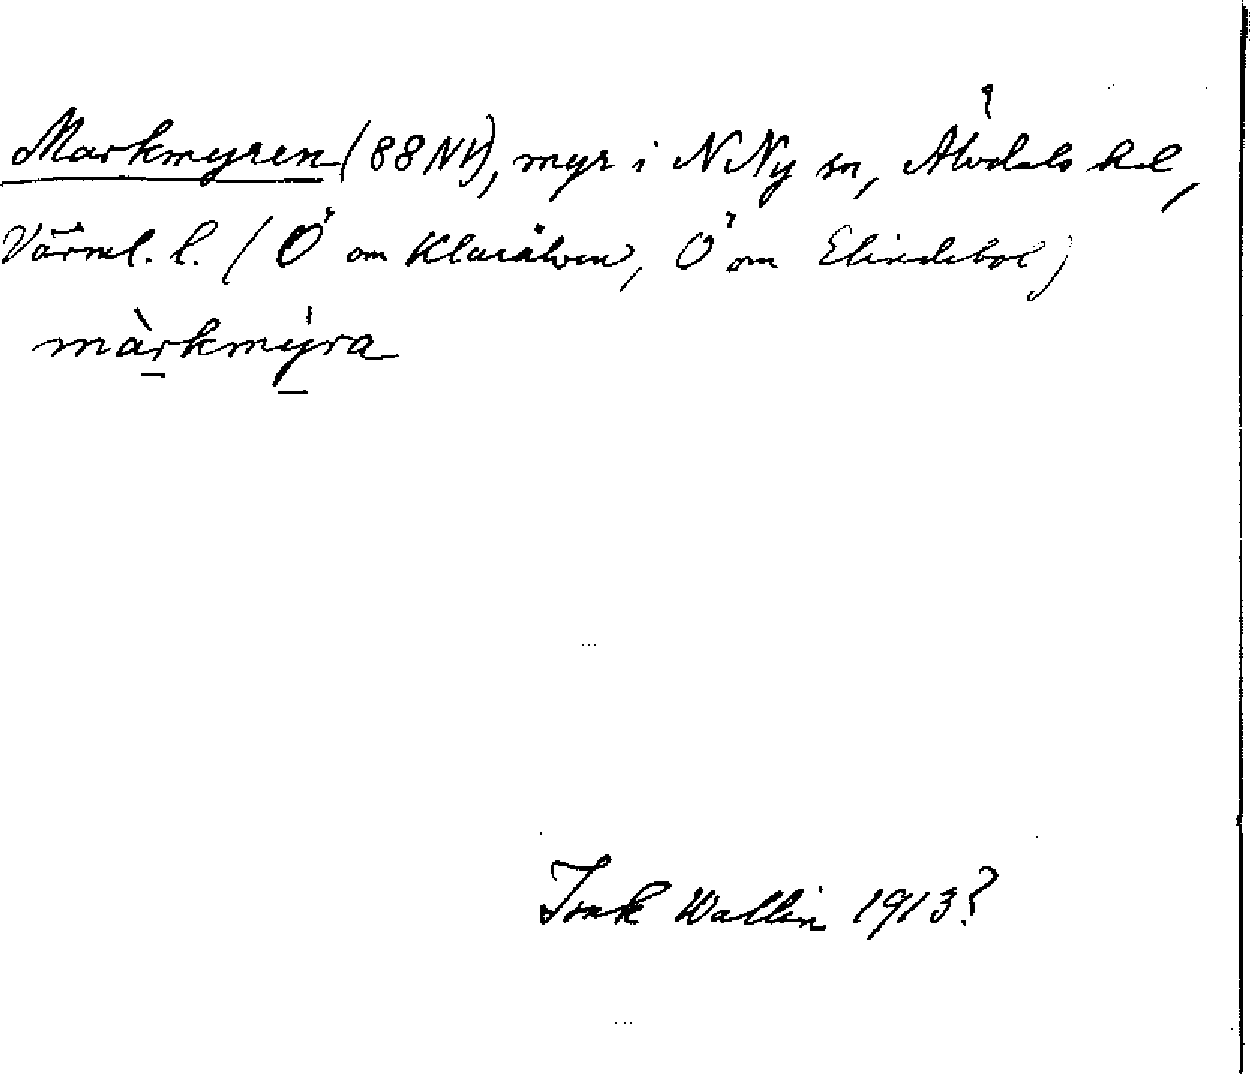 Markmyren (88 NV), myr i N Ny sn, Älvdals hd,
Värml. l. (Ö om Klarälven, Ö om Elindebol)
màrkmýra
Isak Wallin 1913?